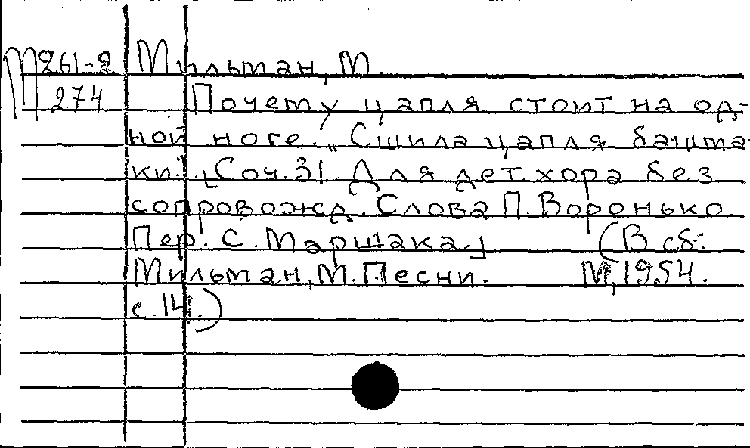 М261-2 Мильман, М.
274 Почему цапля стоит на од-
ной ноге. „Сшила цапля башма-
ки." [Соч. 3! Для дет. хора без
сопровожд. Слова П. Воронько
Пер. С. Маршака.] (В сб.:
Мильман, М. Песни. М, 1954.
с. 14.)